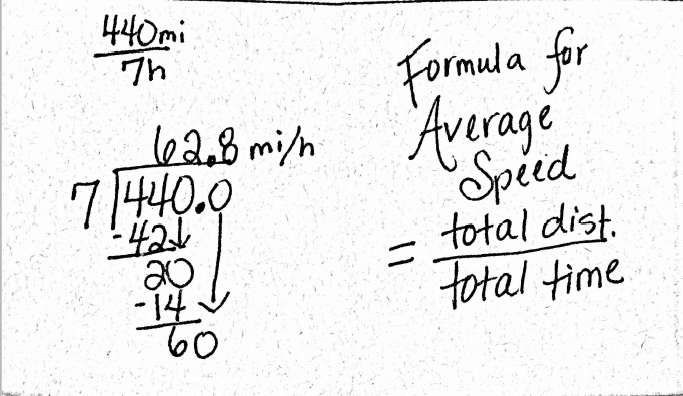 440mi
7h
62.8 mi/h
7 440.0
-42
20
-14
60
Formula for
Average
Speed
= total dist.
total time